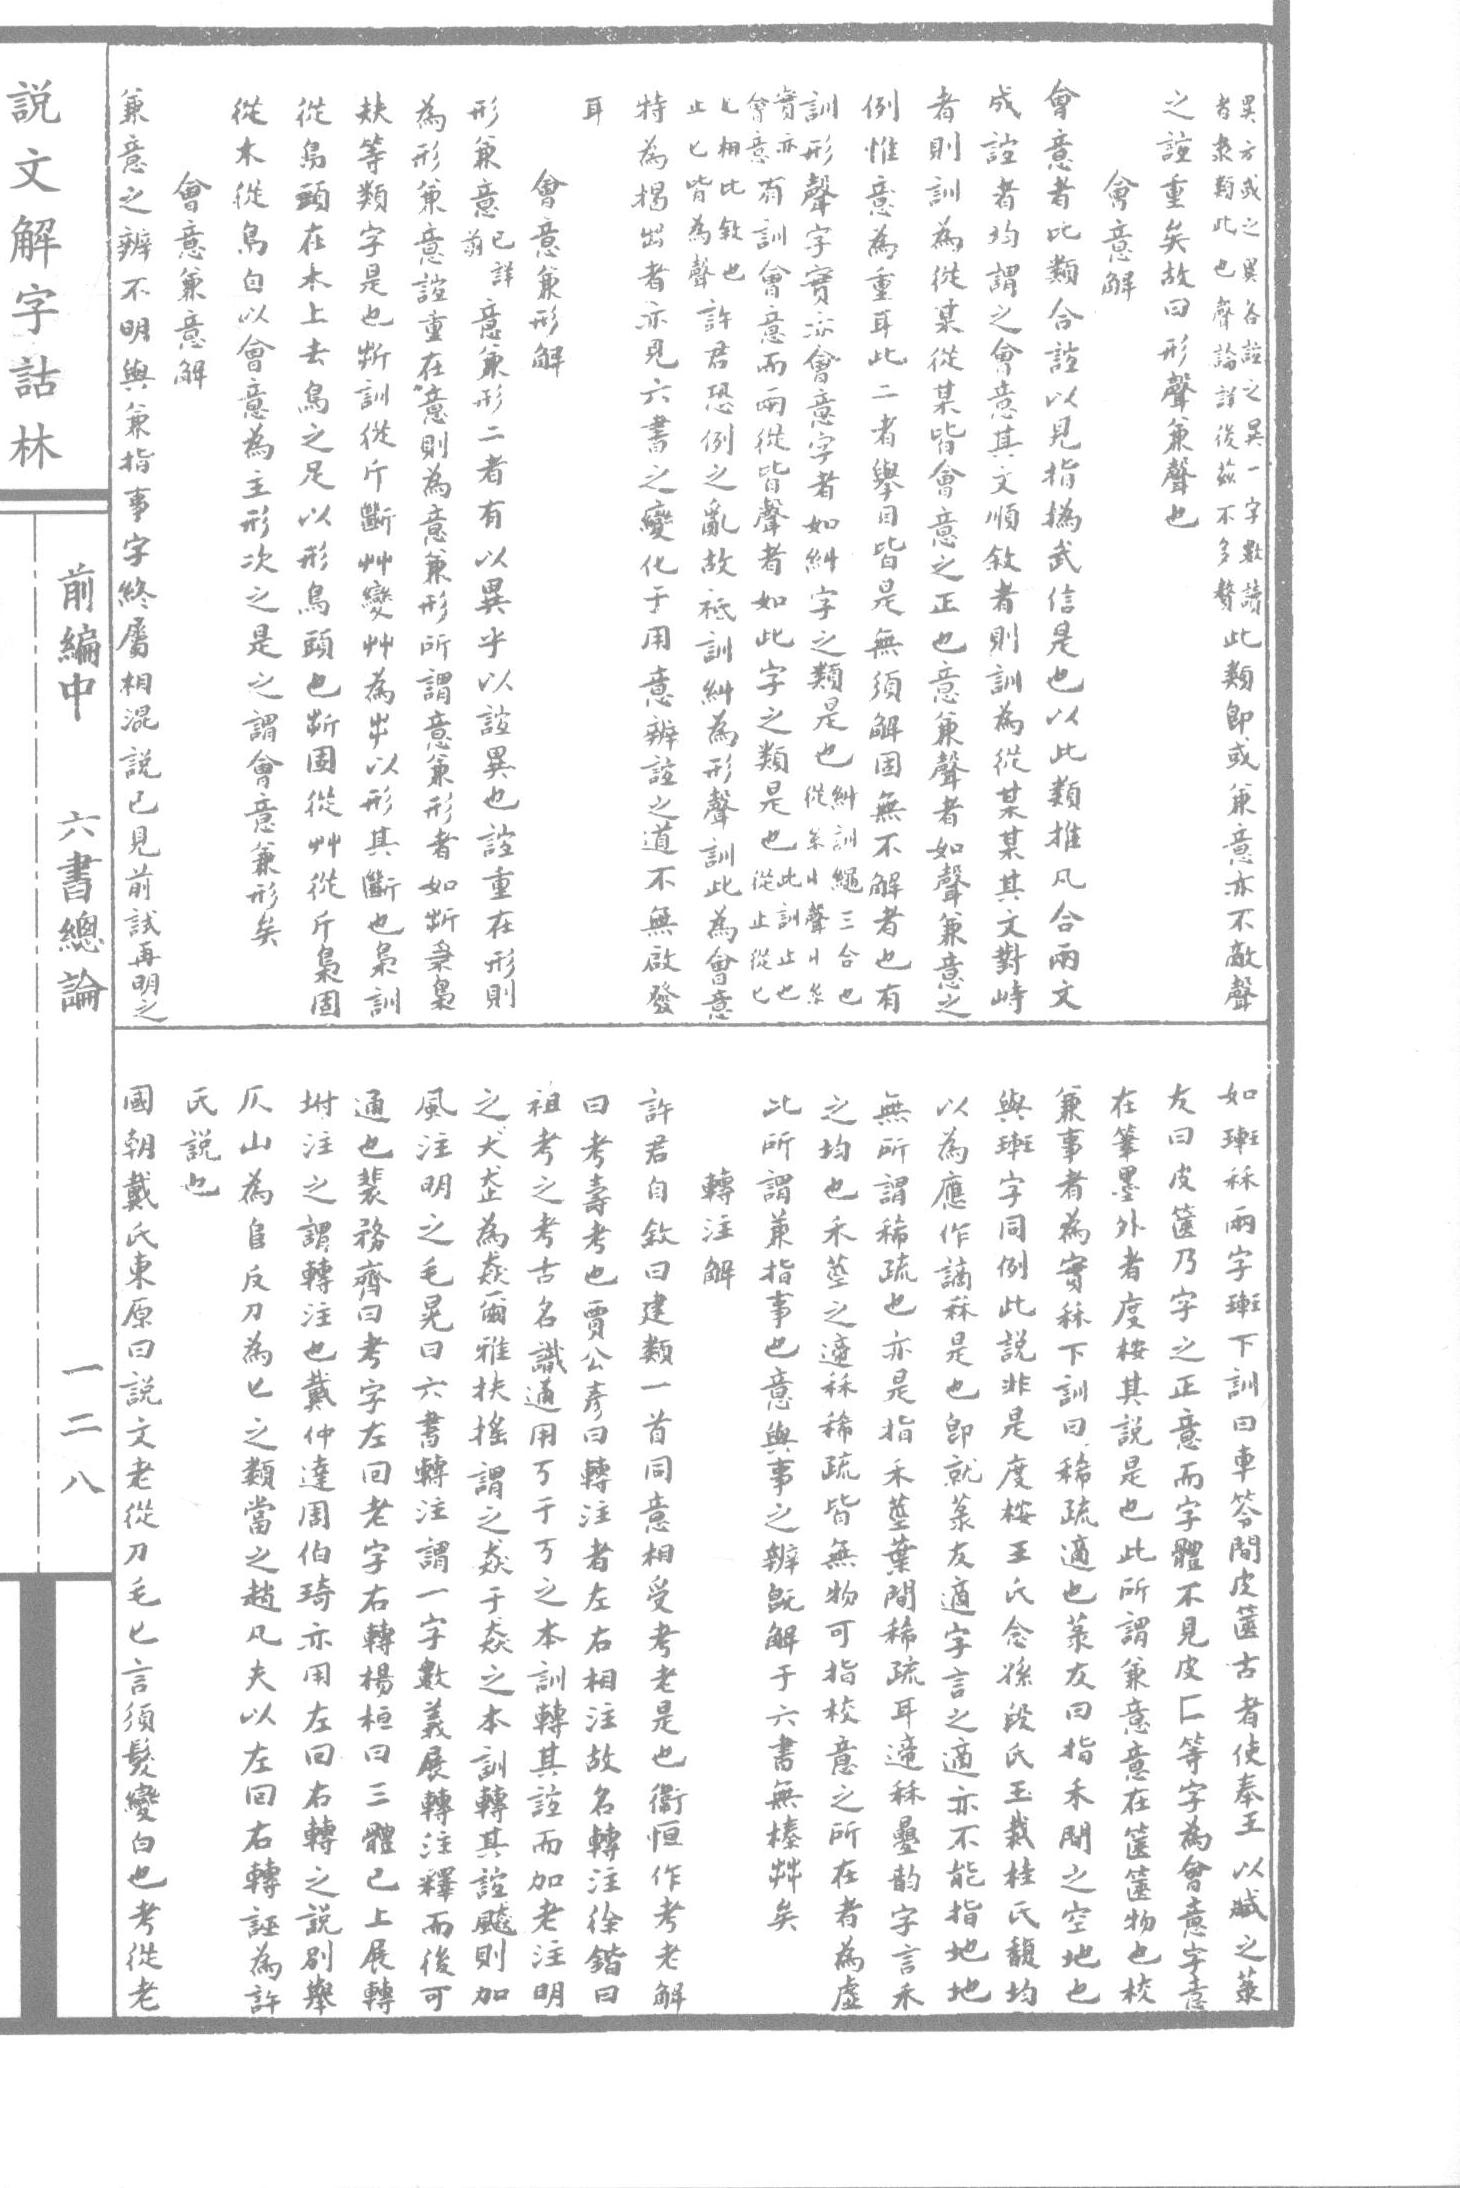 異方或之異各誼之異一字數讀
者衆類此也聲論詳後茲不多贅此類卽或兼意亦不敵聲
之誼重矣故曰形聲兼聲也
會意解
會意者比類合誼以見指撝武信是也以此類推凡合兩文
成誼者均謂之會意其文順敘者則訓為從某某其文對峙
者則訓為從某從某皆會意之正也意兼聲者如聲兼意之
例惟意為重耳此二者舉目皆是無須解固無不解者也有
訓形聲字實亦會意字者如糾字之類是也糾訓繩三合也
從糸丩聲丩糸
實亦
會意有訓會意而兩從皆聲者如此字之類是也此訓止也
從止從匕
匕相比敘也
止匕皆為聲許君恐例之亂故祗訓糾為形聲訓此為會意
特為揭出者亦見六書之變化于用意辨誼之道不無啟發
耳
會意兼形解
形兼意已詳
前意兼形二者有以異乎以誼異也誼重在形則
為形兼意誼重在意則為意兼形所謂意兼形者如㪿梟
㚒等類字是也㪿訓從斤斷艸變艸為屮以形其斷也梟訓
從鳥頭在木上去鳥之足以形鳥頭也㪿固從艸從斤梟固
從木從鳥自以會意為主形次之是之謂會意兼形矣
會意兼意解
兼意之辨不明與兼指事字終屬相混說已見前試再明之
如𤦲秝兩字𤦲下訓曰車笭間皮篋古者使奉玉以藏之菉
友曰皮篋乃字之正意而字體不見皮匚等字為會意字意
在筆墨外者度桉其說是也此所謂兼意意在篋篋物也校
兼事者為實秝下訓曰稀疏適也菉友曰指禾間之空地也
與𤦲字同例此說非是度桉王氏念孫段氏玉裁桂氏馥均
以為應作讁秝是也卽就菉友適字言之適亦不能指地地
無所謂稀疏也亦是指禾莖葉間稀疏耳適秝疊韵字言禾
之均也禾莖之適秝稀疏皆無物可指校意之所在者為虛
此所謂兼指事也意與事之辨旣解于六書無榛艸矣
轉注解
許君自敘曰建類一首同意相受考老是也衞恒作考老解
曰考壽考也賈公彥曰轉注者左右相注故名轉注徐鍇曰
祖考之考古名識通用丂于丂之本訓轉其誼而加老注明
之犬走為猋爾雅扶搖謂之猋于猋之本訓轉其誼飈則加
風注明之毛晃曰六書轉注謂一字數義展轉注釋而後可
通也裴務齊曰考字左回老字右轉楊桓曰三體已上展轉
坿注之謂轉注也戴仲達周伯琦亦用左回右轉之說別舉
仄山為𨸏反刀為匕之類當之趙凡夫以左回右轉誣為許
氏說也
國朝戴氏東原曰說文老從刀毛匕言須髮變白也考從老
說文解字詁林
前編中　六書總論
一二八